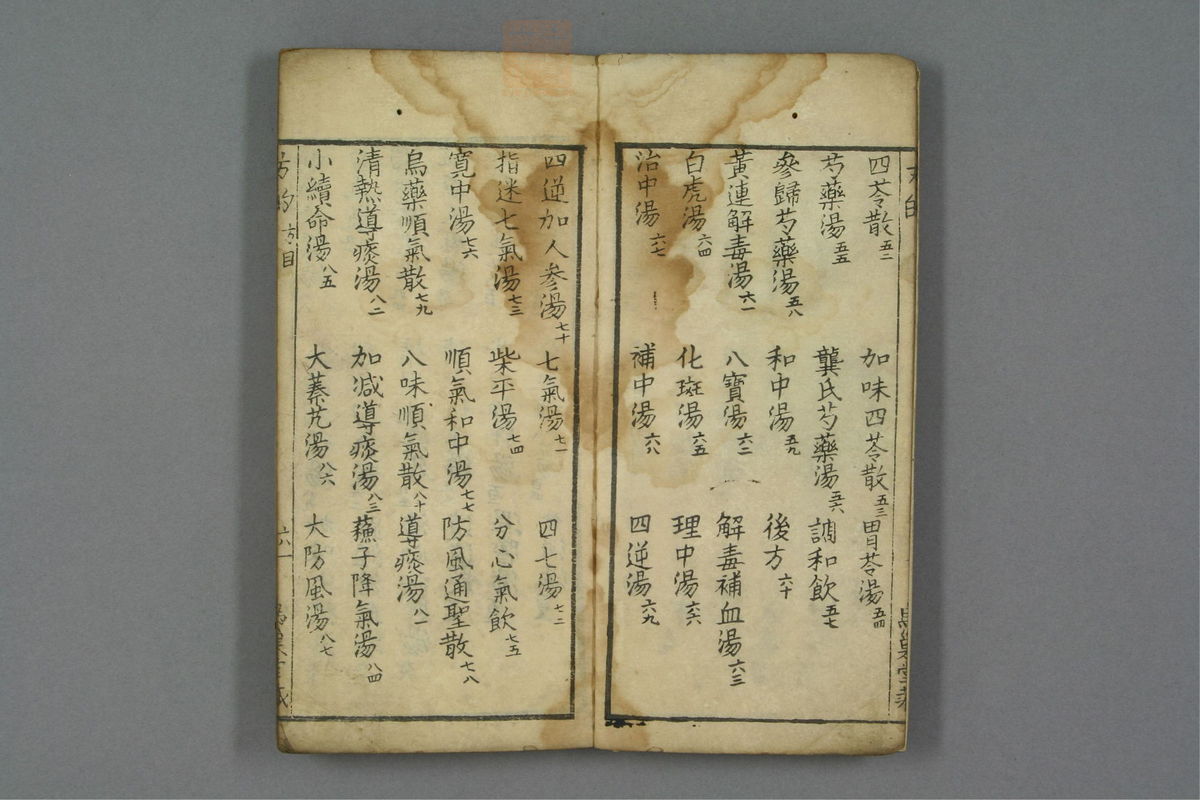 四苓散五二 加味四苓散五三 胃苓湯五四
芍藥湯五五 龔氏芍藥湯五六 調和飲五七
參歸芍藥湯五八 和中湯五九 後方六十
黃連解毒湯六一 八寶湯六二 解毒補血湯六三
白虎湯六四 化斑湯六五 理中湯六六
治中湯六七 補中湯六八 四逆湯六九
四逆加人參湯七十 七氣湯七一 四七湯七二
指迷七氣湯七三 柴平湯七四 分心氣飲七五
寛中湯七六 順氣和中湯七七 防風通聖散七八
烏藥順氣散七九 八味順氣散八十 導痰湯八一
清熱導痰湯八二 加減導痰湯八三 蘓子降氣湯八四
小續命湯八五 大蓁艽湯八六 大防風湯八七